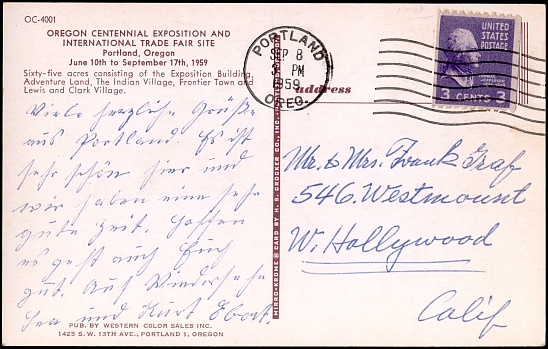 OC-4001
OREGON CENTENNIAL EXPOSITION AND
INTERNATIONAL TRADE FAIR SITE
Portland, Oregon
June 10th to September 17th, 1959
Sixty-five acres consisting of the Exposition Building,
Adventure Land, The Indian Village, Frontier Town and
Lewis and Clark Village.
Viele herzliche Grüße
aus Portland. Es ist
sehr schön hier und
wir haben eine sehr
gute Zeit. Hoffen
es geht auch Euch
gut. Auf Wiedersehe
und Kurt Ebert.
PUB. BY WESTERN COLOR SALES INC.
1425 S.W. 13TH AVE., PORTLAND 1, OREGON
MIRRO-KROME ® CARD BY H. S. CROCKER CO., INC.
PORTLAND
SEP 8
PM
1959
OREG.
address
UNITED
STATES
POSTAGE
3 CENTS 3
Mr. & Mrs. Frank Graf
546. Westmount
W. Hollywood
Calif